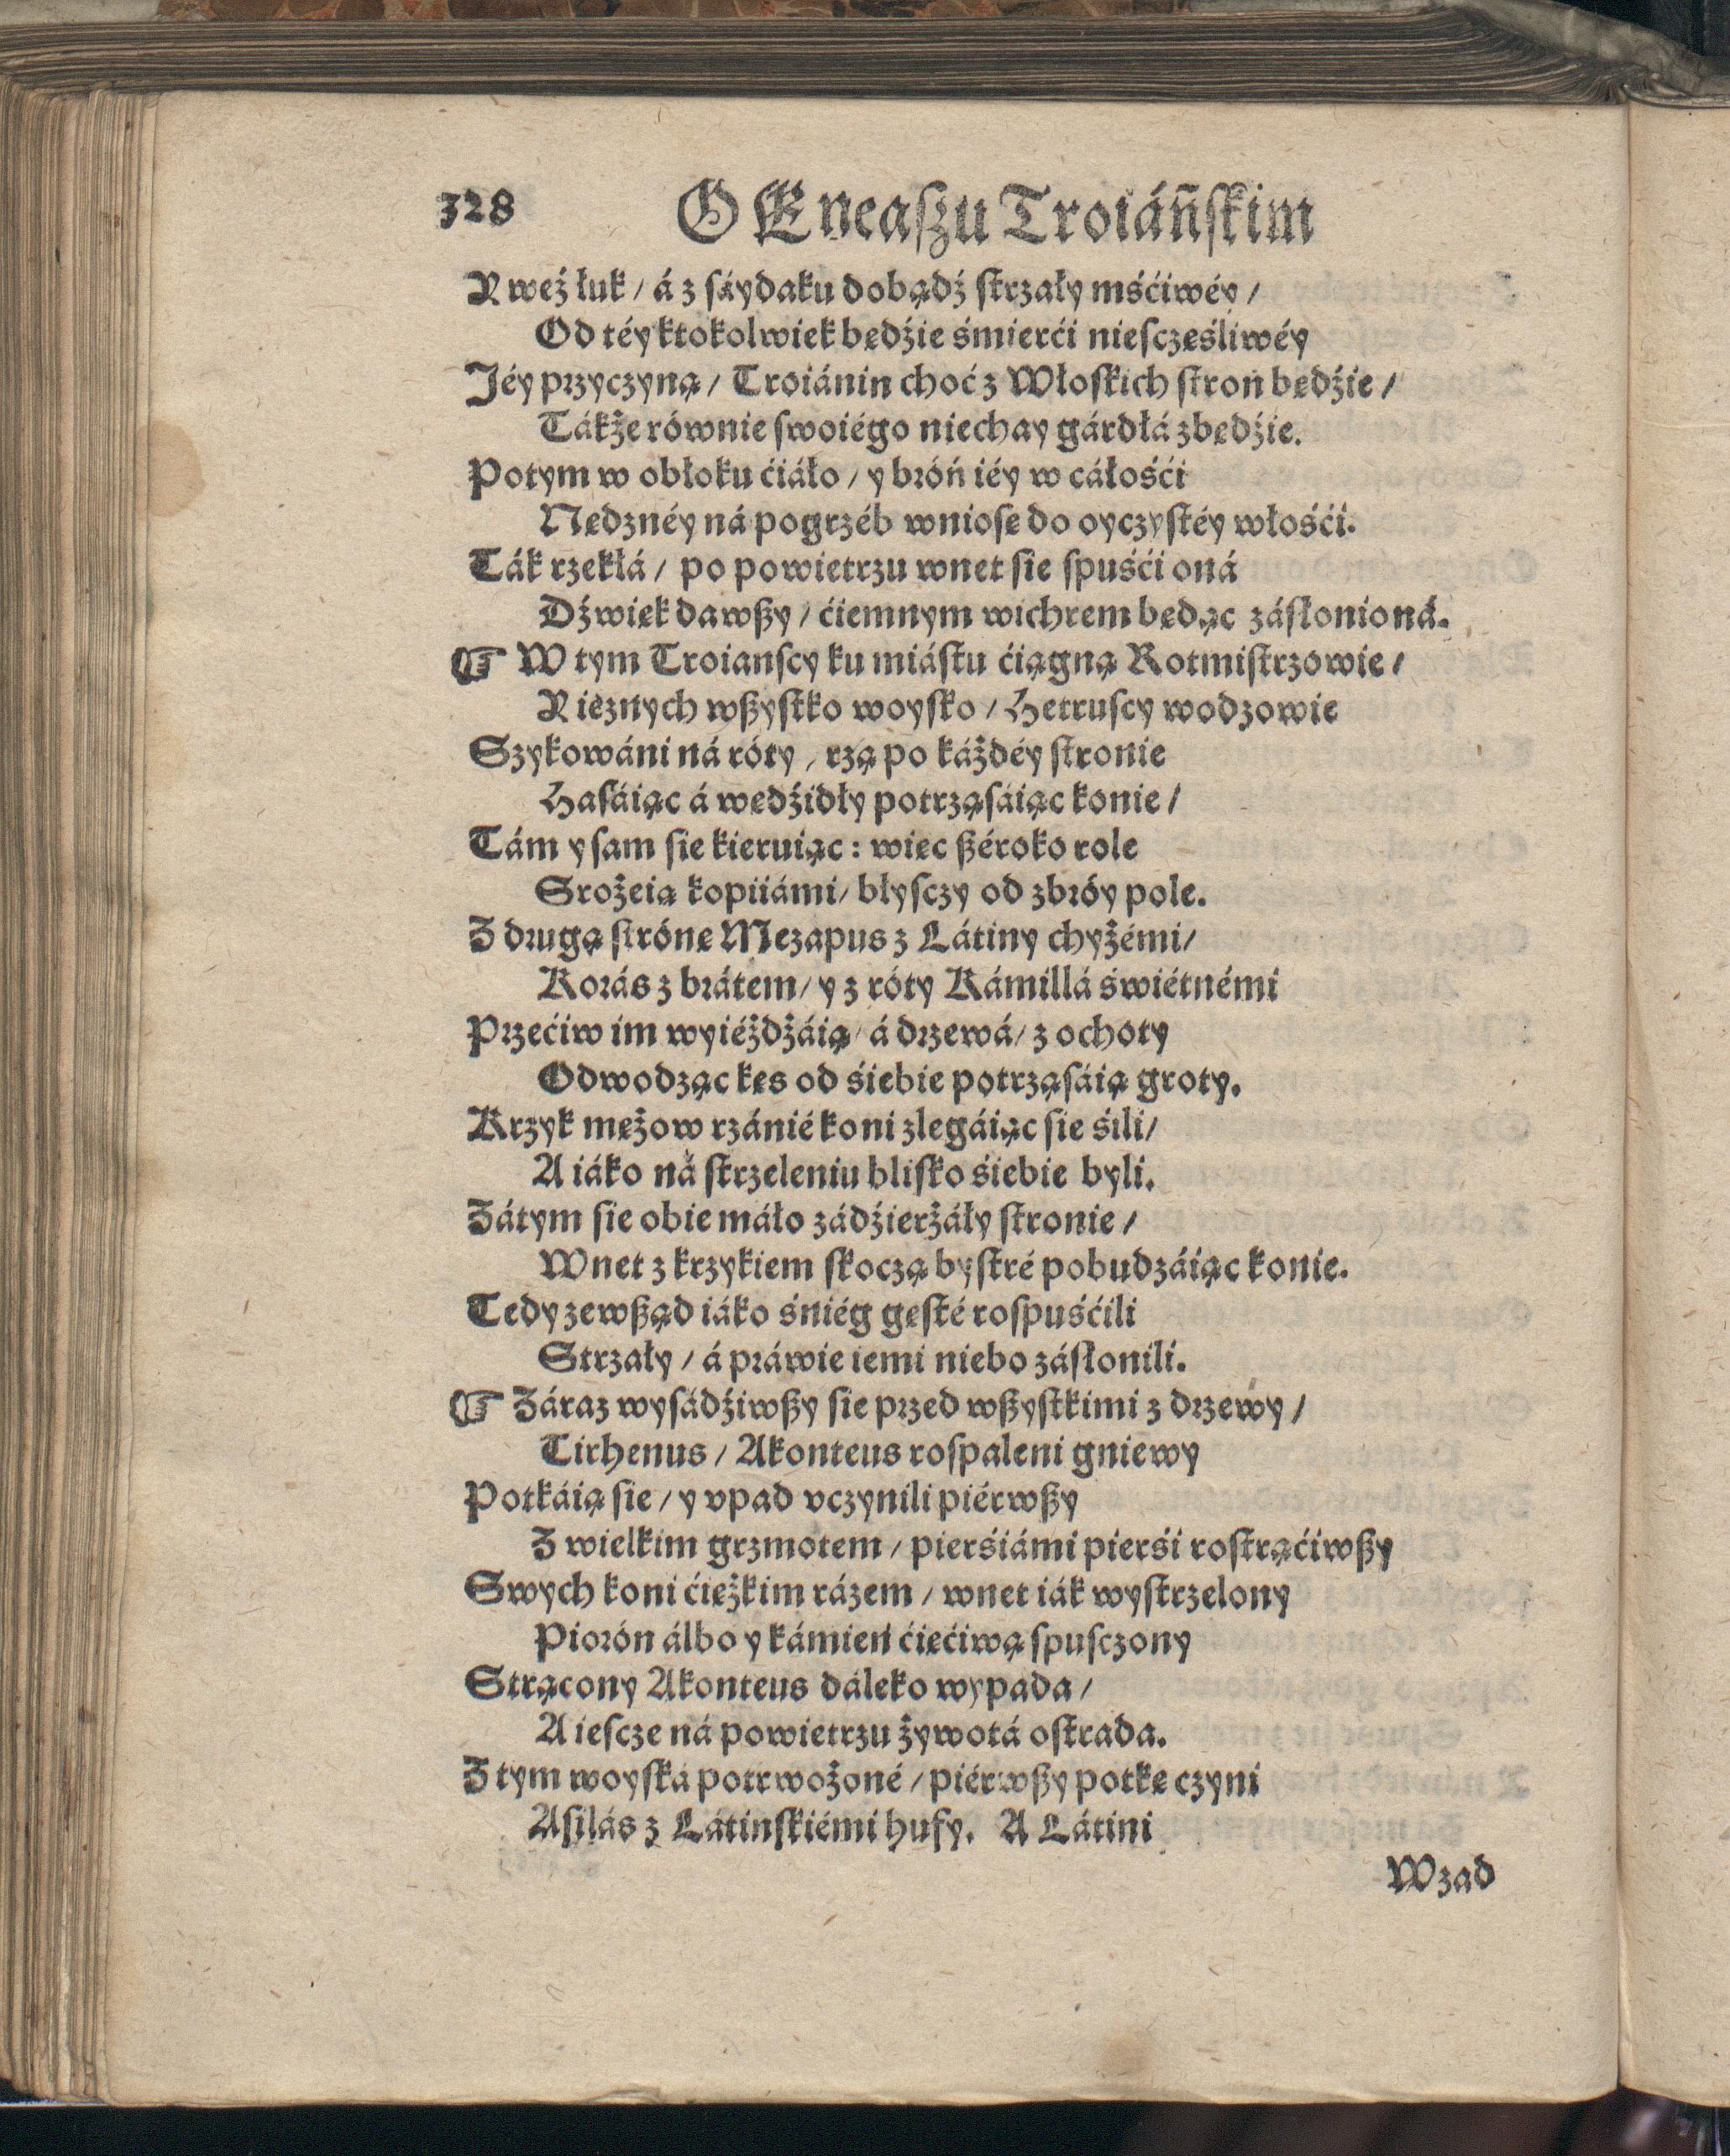 328 O Eneaszu Troiáńskim
Y weź łuk / á z sáydaku dobądź strzały mśćiwéy /
Od téy ktokolwiek będźie śmierći niesczęśliwéy
Jéy przyczyną / Troiánin choć z Włoskich stron będźie /
Tákże równie swoiégo niechay gárdłá zbędźie.
Potym w obłoku ćiáło / y bróń iéy w cáłośći
Nędznéy ná pogrzéb wniosę do oyczystéy włośći.
Ták rzekłá / po powietrzu wnet sie spuśći oná
Dźwięk dawszy / ćiemnym wichrem będąc zásłonioná.
☞ W tym Troianscy ku miástu ćiągną Rotmistrzowie /
Y ieznych wszystko woysko / Hetruscy wodzowie
Szykowáni ná róty / rżą po káżdéy stronie
Hasáiąc á wędźidły potrząsáiąc konie /
Tám y sam sie kieruiąc : więc széroko role
Srożeią kopiiámi / błysczy od zbróy pole.
Z drugą strónę Mezapus z Látiny chyżémi /
Korás z brátem / y z róty Kámillá świétnémi
Przećiw im wyiéżdżáią / á drzewá / z ochoty
Odwodząc kęs od śiebie potrząsáią groty.
Krzyk mężow rzánié koni zlegáiąc sie śili /
A iáko ná strzeleniu blisko śiebie byli.
Zátym sie obie máło zádźierżáły stronie /
Wnet z krzykiem skoczą bystré pobudzáiąc konie.
Tedy zewsząd iáko śniég gęsté rospuśćili
Strzały / á práwie iemi niebo zásłonili.
☞ Záraz wysádźiwszy sie przed wszystkimi z drzewy /
Tirhenus / Akonteus rospaleni gniewy
Potkáią sie / y vpad vczynili piérwszy
Z wielkim grzmotem / pierśiámi pierśi rostrąćiwszy
Swych koni ćiężkim rázem / wnet iák wystrzelony
Piorón álbo y kámień ćięćiwą spusczony
Strącony Akonteus dáleko wypada /
A iescze ná powietrzu żywotá ostrada.
Z tym woyská potrwożoné / piérwszy potkę czyni
Asilás z Látinskiémi hufy. A Látini
Wzad